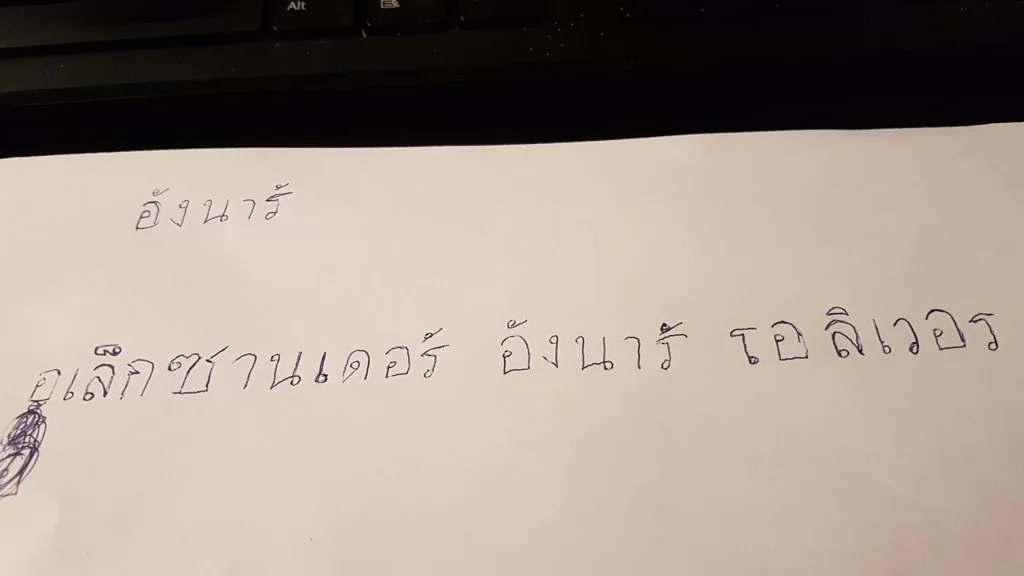 Alt
อังนาร์
อเล็กซานเดอร์ อังนาร์ รอลิเวอร